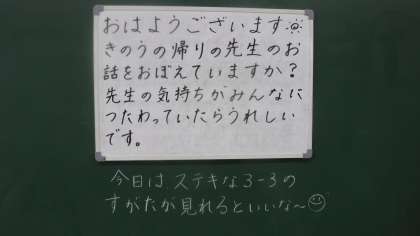 おはようございます☀
きのうの帰りの先生のお
話をおぼえていますか？
先生の気持ちがみんなに
つたわっていたらうれしい
です。
今日は ステキな3-3の
すがたが見れるといいな〜☺